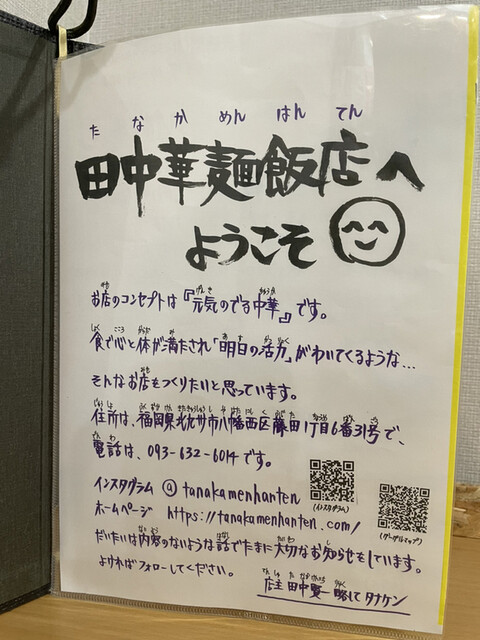 たなかめんはんてん
田中華麺飯店へ
ようこそ
お店のコンセプトは『元気のでる中華』です。
食で心と体が満たされ「明日の活力」がわいてくるような…
そんなお店をつくりたいと思っています。
住所は、福岡県北九州市八幡西区藤田1丁目6番31号で、
電話は、093-632-6014です。
インスタグラム @tanakamenhanten
(インスタグラム)
ホームページ https://tanakamenhanten.com/
(グーグルマップ)
だいたいは内容のないような話でたまに大切なお知らせをしています。
よければフォローしてください。
店主 田中賢一 略してタナケン